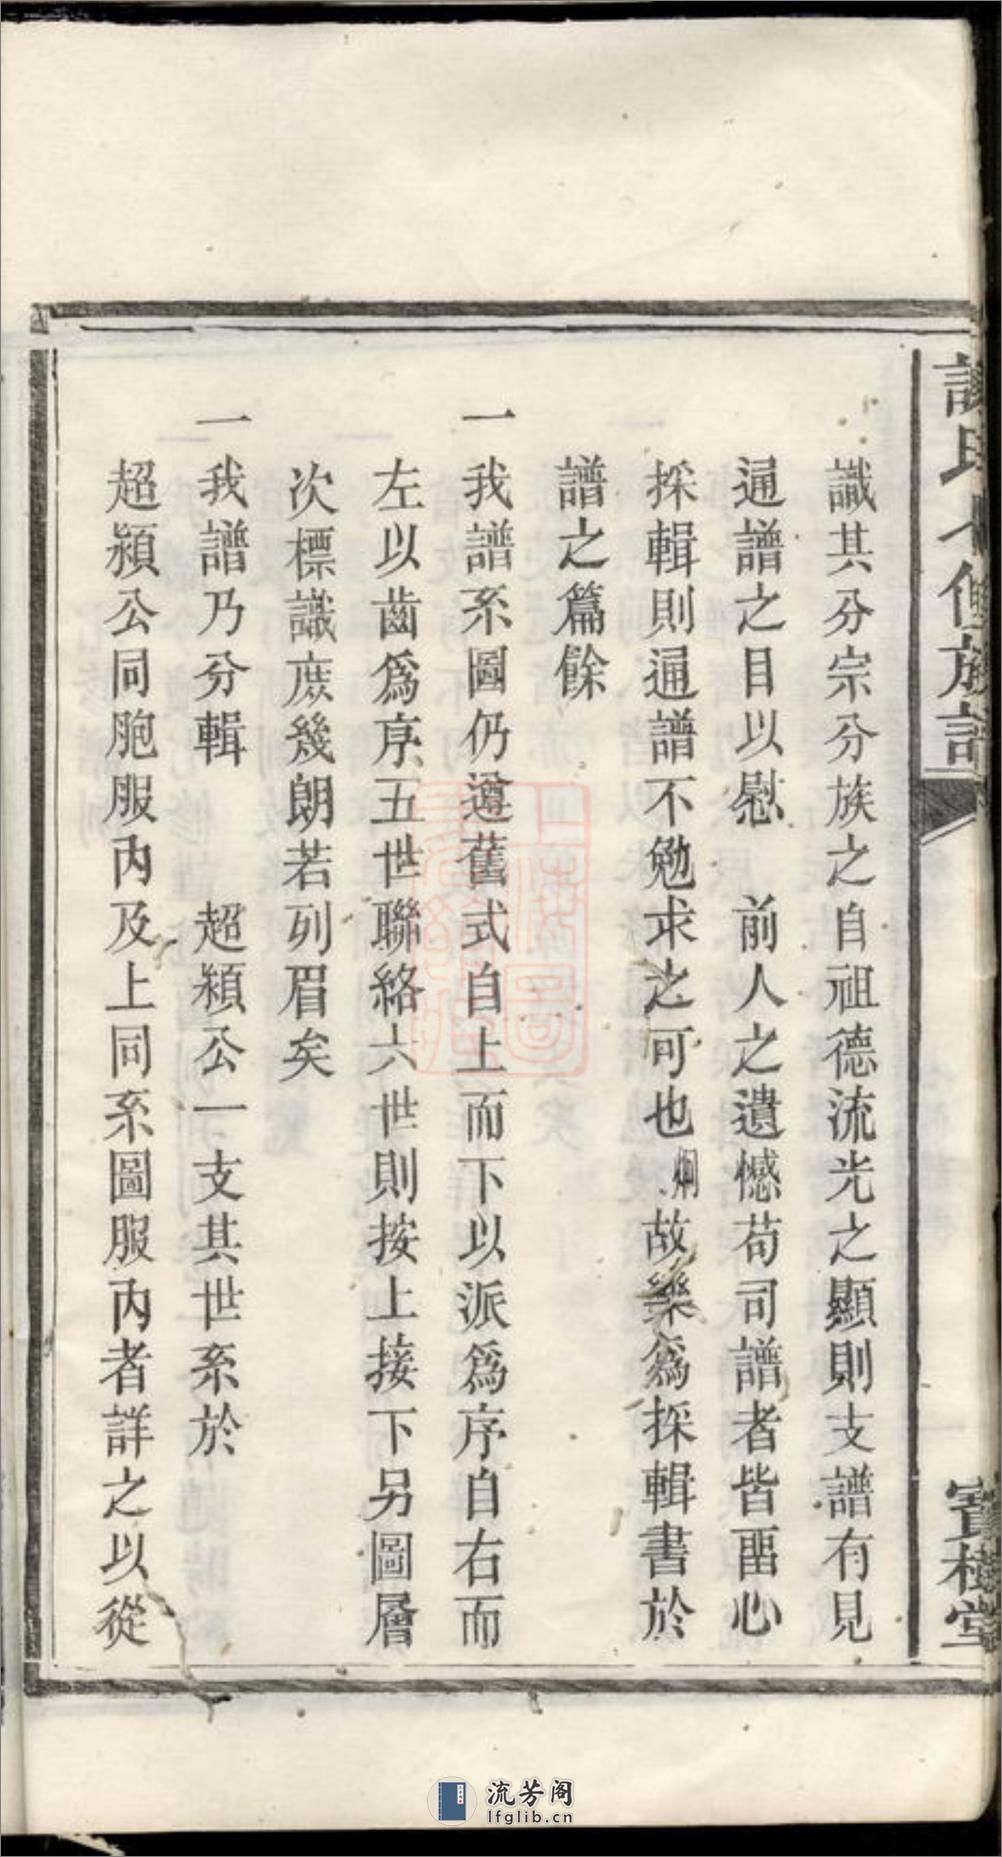 識其分宗分族之自祖德流光之顯則支譜有見
通譜之目以慰　前人之遺憾苟司譜者皆畱心
採輯則通譜不勉求之可也烱故樂爲採輯書於
譜之篇餘
一我譜系圖仍遵舊式自上而下以派爲序自右而
左以齒爲序五世聯絡六世則按上接下另圖層
次標識庶幾朗若列眉矣
一我譜乃分輯　超潁公一支其世系於
超潁公同胞服內及上同系圖服內者詳之以從
族譜
寶樹堂
流芳阁
lfglib.cn